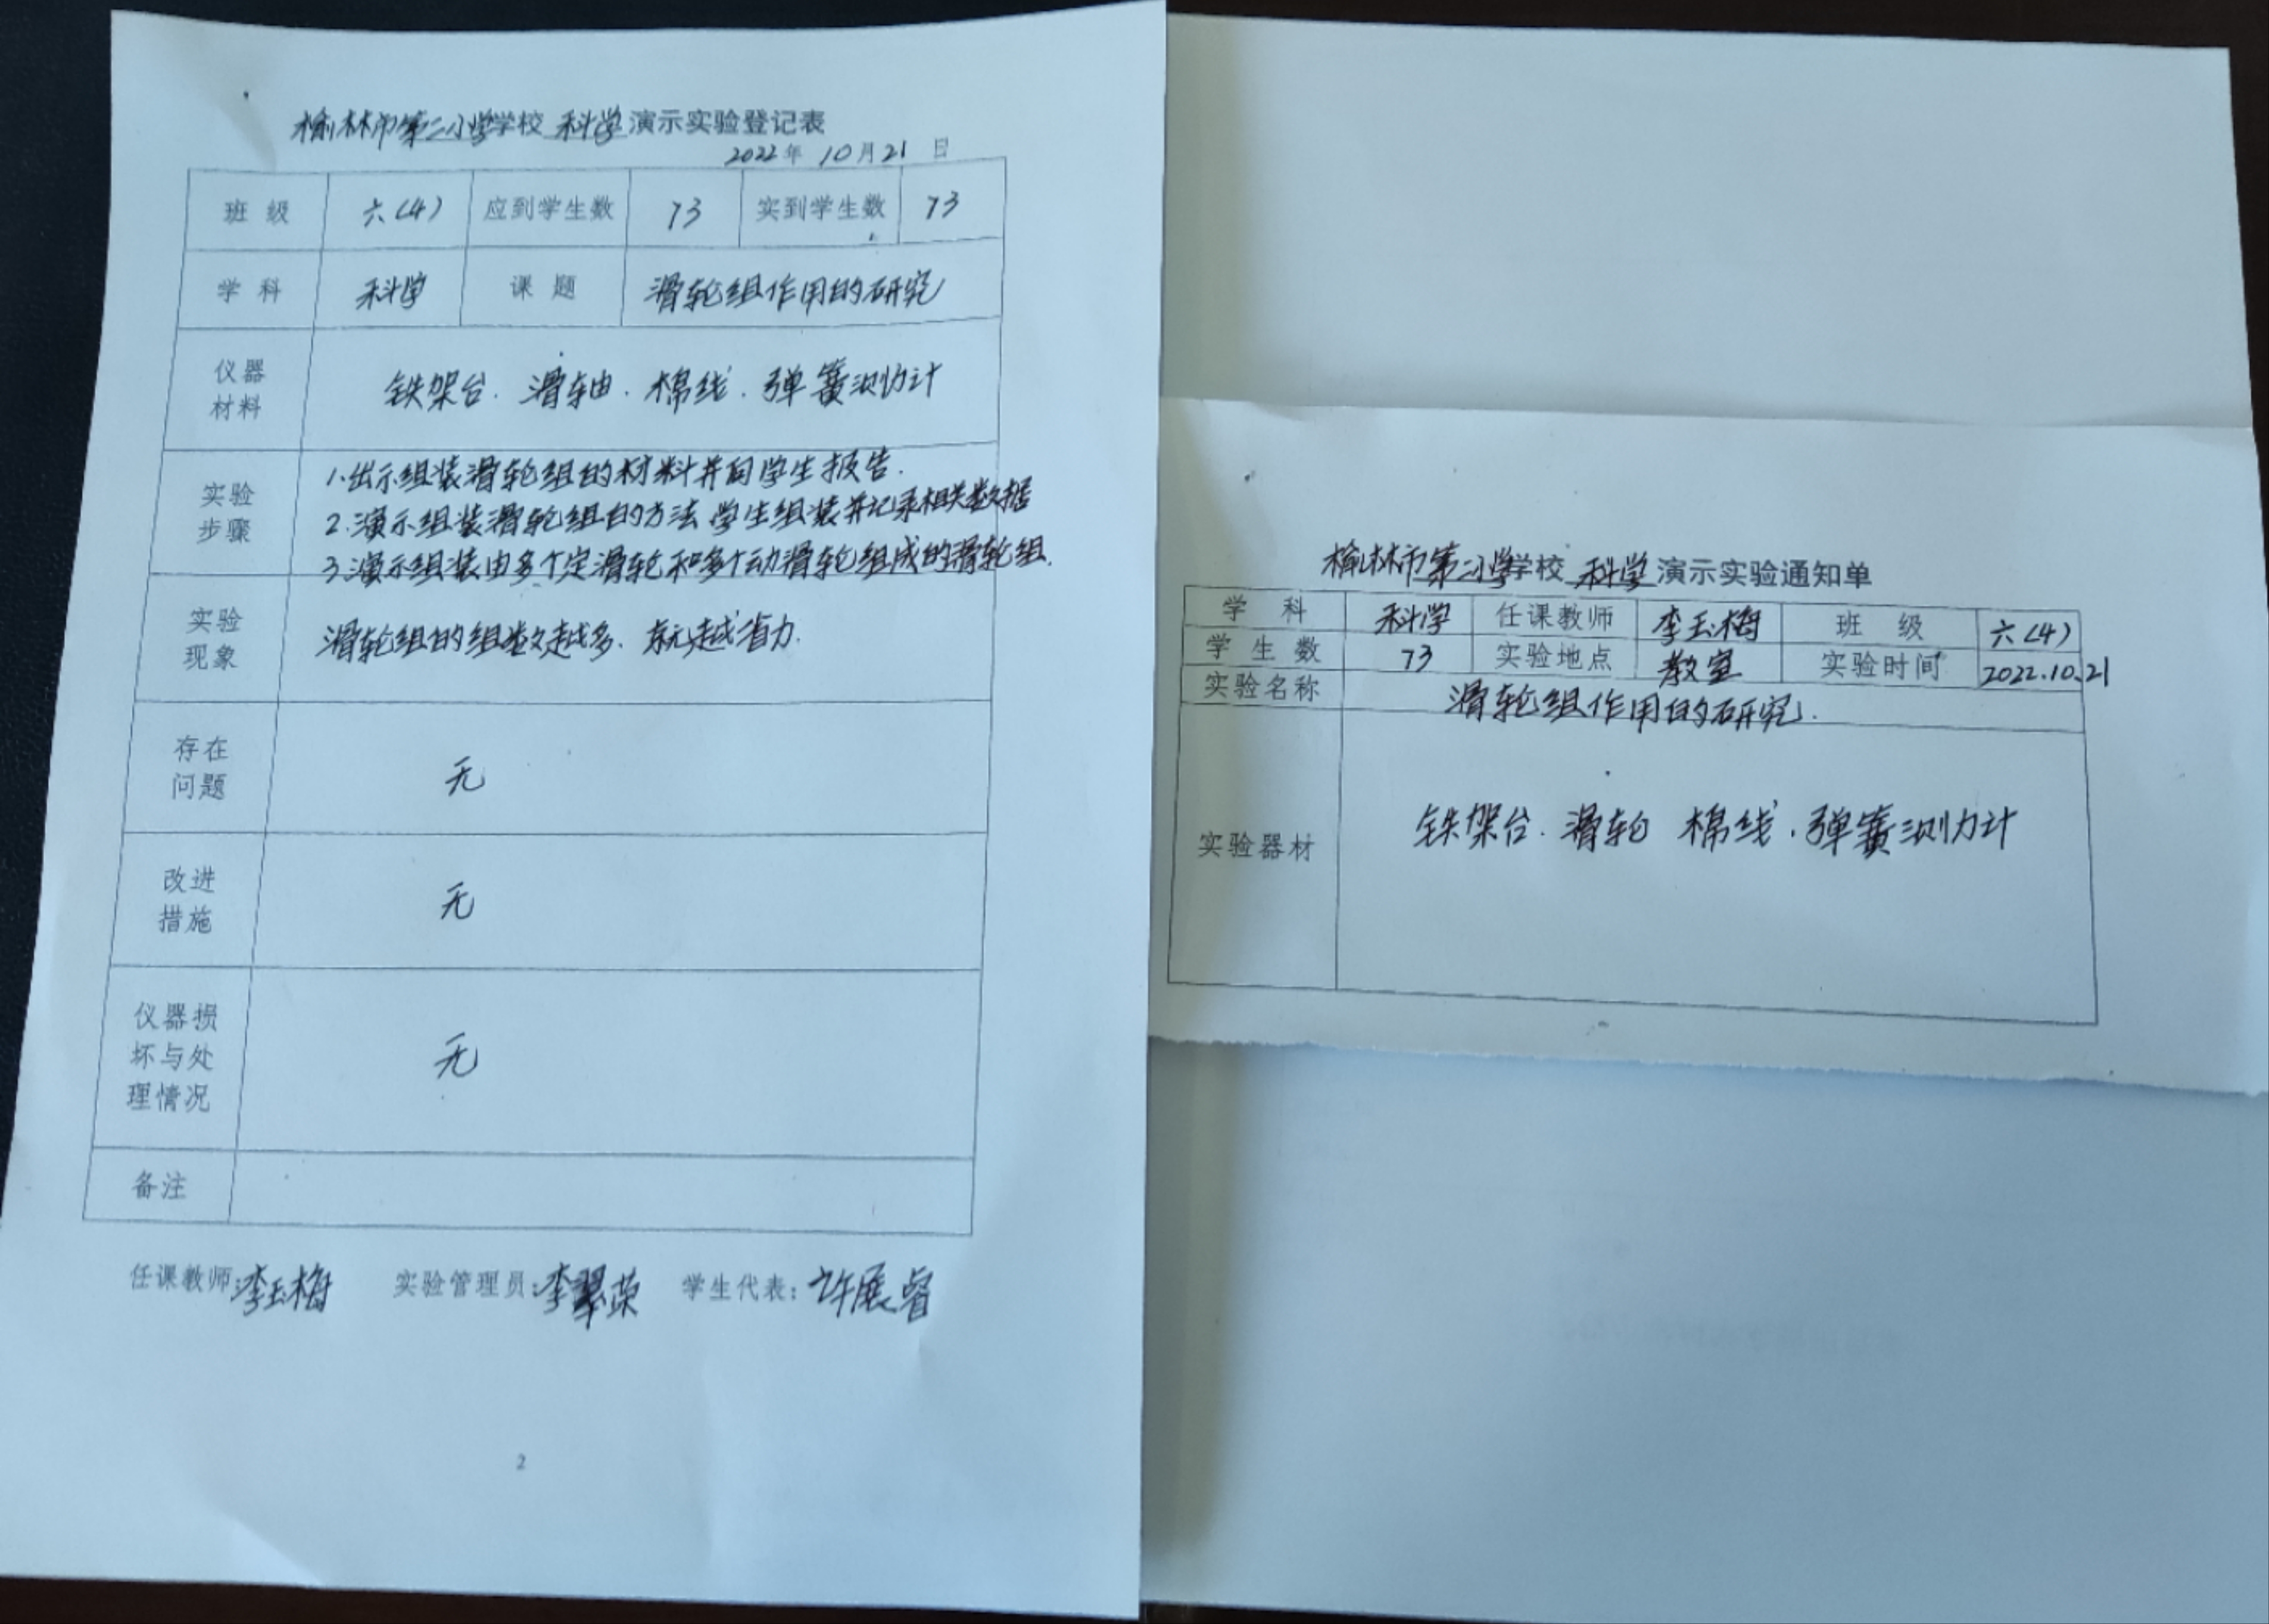 榆林市第二小学学校 科学 演示实验登记表
2022年 10月21 日
班 级 六(4) 应到学生数 73 实到学生数 73
学 科 科学 课 题 滑轮组作用的研究
仪器
材料
铁架台. 滑轴. 棉线. 弹簧测力计
实验
步骤
1.出示组装滑轮组的材料并向学生报告.
2.演示组装滑轮组的方法 学生组装并记录相关数据
3.演示组装由多个定滑轮和多个动滑轮组成的滑轮组.
实验
现象
滑轮组的组数越多、就越省力.
存在
问题
无
改进
措施
无
仪器损
坏与处
理情况
无
备注
任课教师:李玉梅 实验管理员:李翠荣 学生代表:许展睿
2
榆林市第二小学学校 科学 演示实验通知单
学 科 科学 任课教师 李玉梅 班 级 六(4)
学 生 数 73 实验地点 教室 实验时间 2022.10.21
实验名称 滑轮组作用的研究.
实验器材 铁架台. 滑轮 棉线.弹簧测力计